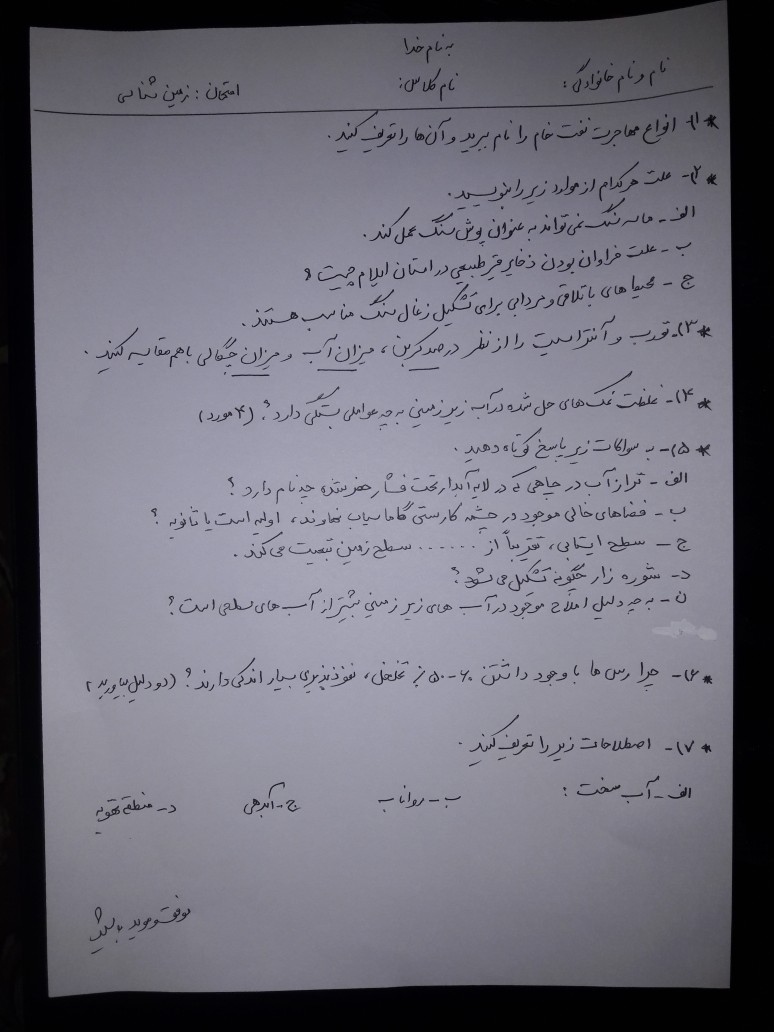 به نام خدا
نام و نام خانوادگی: نام کلاس: امتحان: زمین شناسی
*۱)- انواع مهاجرت نفت خام را نام ببرید و آن ها را تعریف کنید.
*۲)- علت هر کدام از موارد زیر را بنویسید.
الف - ماسه سنگ نمی تواند به عنوان پوش سنگ عمل کند.
ب - علت فراوان بودن ذخایر قیر طبیعی در استان ایلام چیست؟
ج - محیط های باتلاقی و مردابی برای تشکیل زغال سنگ مناسب هستند.
*۳)- تورب و آنتراسیت را از نظر درصد کربن، میزان آب و میزان چگالی باهم مقایسه کنید.
*۴)- غلظت نمک های حل شده در آب زیر زمینی به چه عواملی بستگی دارد؟ (۴ مورد)
*۵)- به سوالات زیر پاسخ کوتاه دهید.
الف - تراز آب در چاهی که در لایه آبدار تحت فشار حفر شده چه نام دارد؟
ب - فضاهای خالی موجود در چشمه کارستی گاماسیاب نهاوند، اولیه است یا ثانویه؟
ج - سطح ایستابی، تقریباً از ...... سطح زمین تبعیت می کند.
د - شوره زار چگونه تشکیل می شود؟
ن - به چه دلیل املاح موجود در آب های زیر زمینی بیشتر از آب های سطحی است؟
*۶)- چرا رس ها با وجود داشتن ۶۰-۵۰٪ تخلخل، نفوذپذیری بسیار اندکی دارند؟ (دو دلیل بیاورید)
*۷)- اصطلاحات زیر را تعریف کنید.
الف - آب سخت: ب - رواناب ج - آبدهی د - منطقه تهویه
موفق و موید باشید